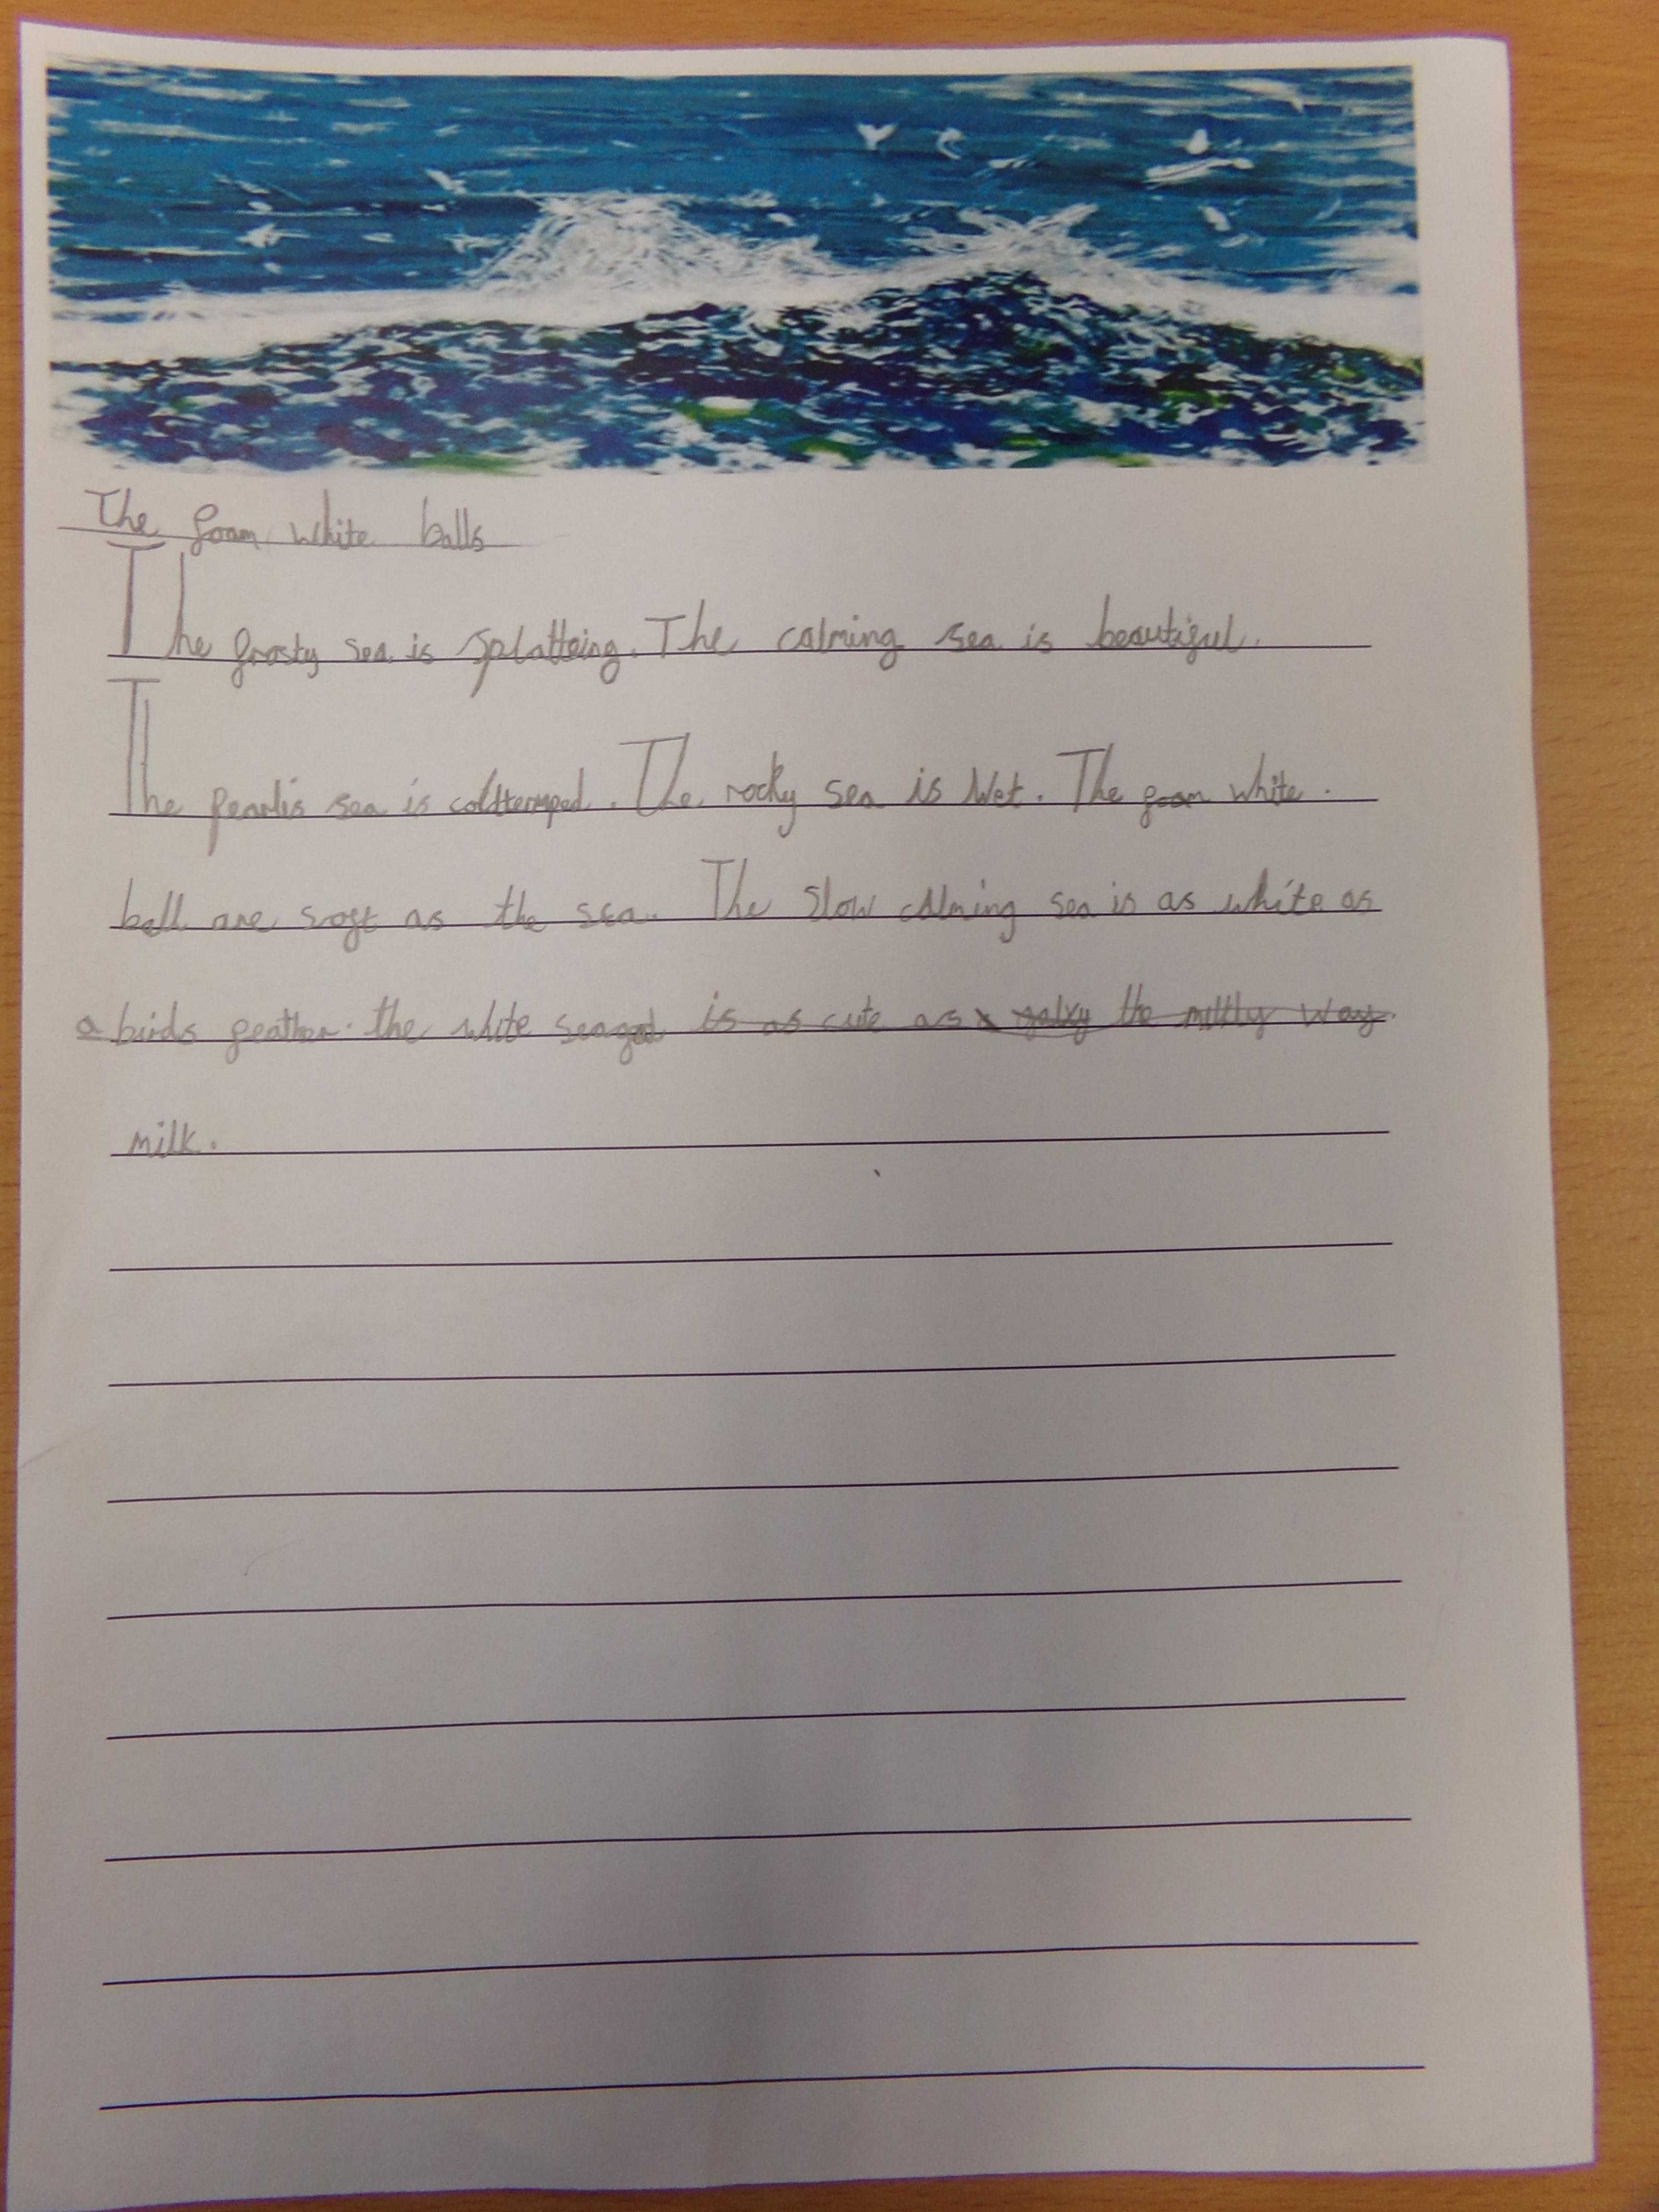 The foam white balls
The frosty sea is splatteing. The calming sea is beautiful.
The pearlis sea is coldtermped. The rocky sea is wet. The foam white.
ball are soft as the sea. The slow calming sea is as white as
a birds feather. the white seagal is as cute as galxy the miltly way.
milk.